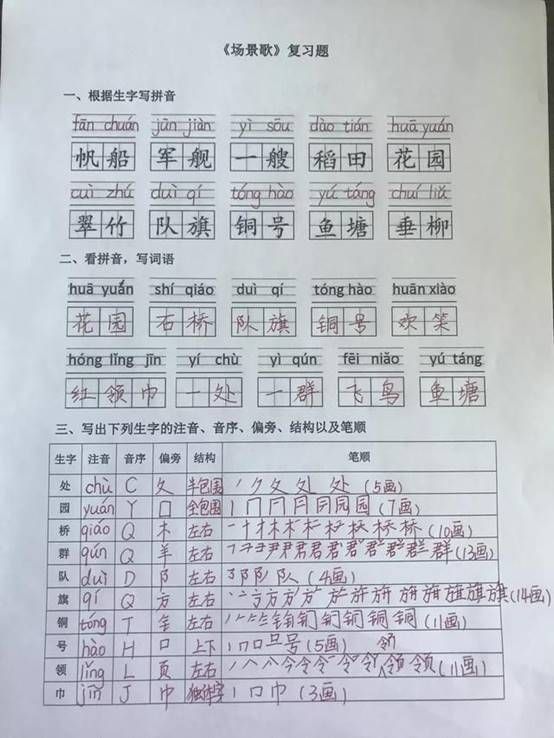 《场景歌》复习题
一、根据生字写拼音
fān chuán jūn jiàn yì sōu dào tián huā yuán
帆船 军舰 一艘 稻田 花园
cuì zhú duì qí tóng hào yú táng chuí liǔ
翠竹 队旗 铜号 鱼塘 垂柳
二、看拼音，写词语
huā yuán shí qiáo duì qí tóng hào huān xiào
花园 石桥 队旗 铜号 欢笑
hóng lǐng jīn yí chù yì qún fēi niǎo yú táng
红领巾 一处 一群 飞鸟 鱼塘
三、写出下列生字的注音、音序、偏旁、结构以及笔顺
生字 注音 音序 偏旁 结构 笔顺
处 chù C 夂 半包围 丿 ク 夂 处 处 (5画)
园 yuán Y 囗 全包围 (7画)
桥 qiáo Q 木 左右 (10画)
群 qún Q 羊 左右 (13画)
队 duì D 阝 左右 队 (4画)
旗 qí Q 方 左右 旗 (14画)
铜 tóng T 钅 左右 铜 (11画)
号 hào H 口 上下 号 (5画)
领 lǐng L 页 左右 领 (11画)
巾 jīn J 巾 独体字 丨 冂 巾 (3画)